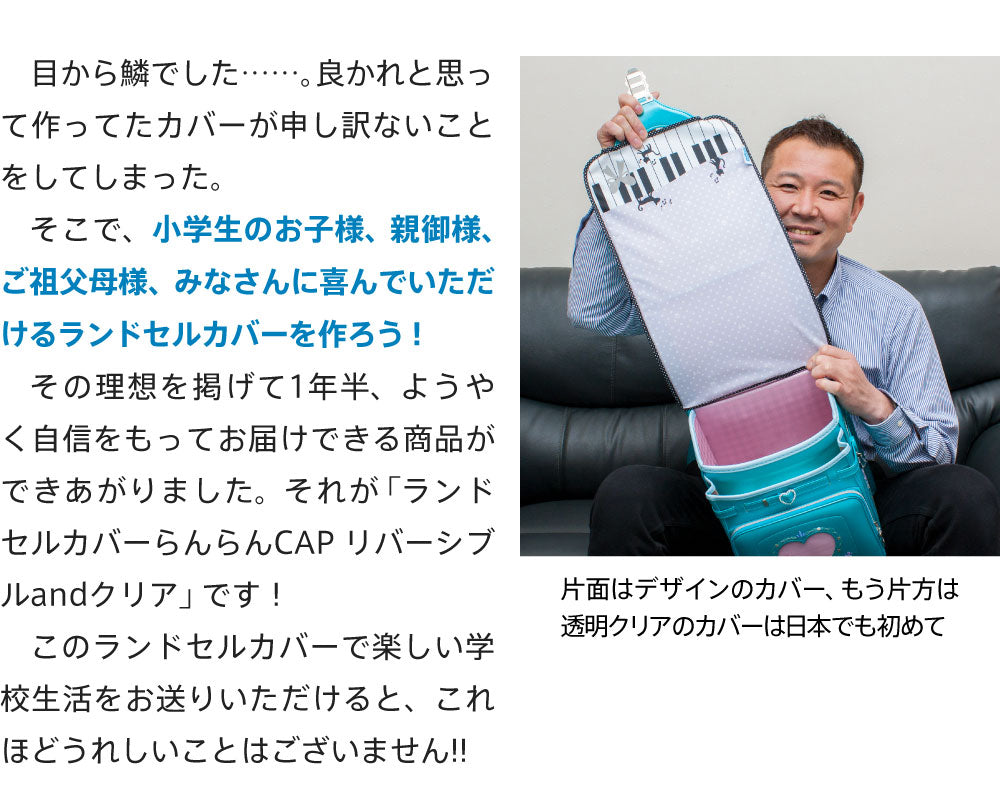 目から鱗でした……。良かれと思っ
て作ってたカバーが申し訳ないこと
をしてしまった。
そこで、小学生のお子様、親御様、
ご祖父母様、みなさんに喜んでいただ
けるランドセルカバーを作ろう！
その理想を掲げて1年半、ようや
く自信をもってお届けできる商品が
できあがりました。それが「ランド
セルカバーらんらんCAP リバーシブ
ルandクリア」です！
このランドセルカバーで楽しい学
校生活をお送りいただけると、これ
ほどうれしいことはございません!!
片面はデザインのカバー、もう片方は
透明クリアのカバーは日本でも初めて